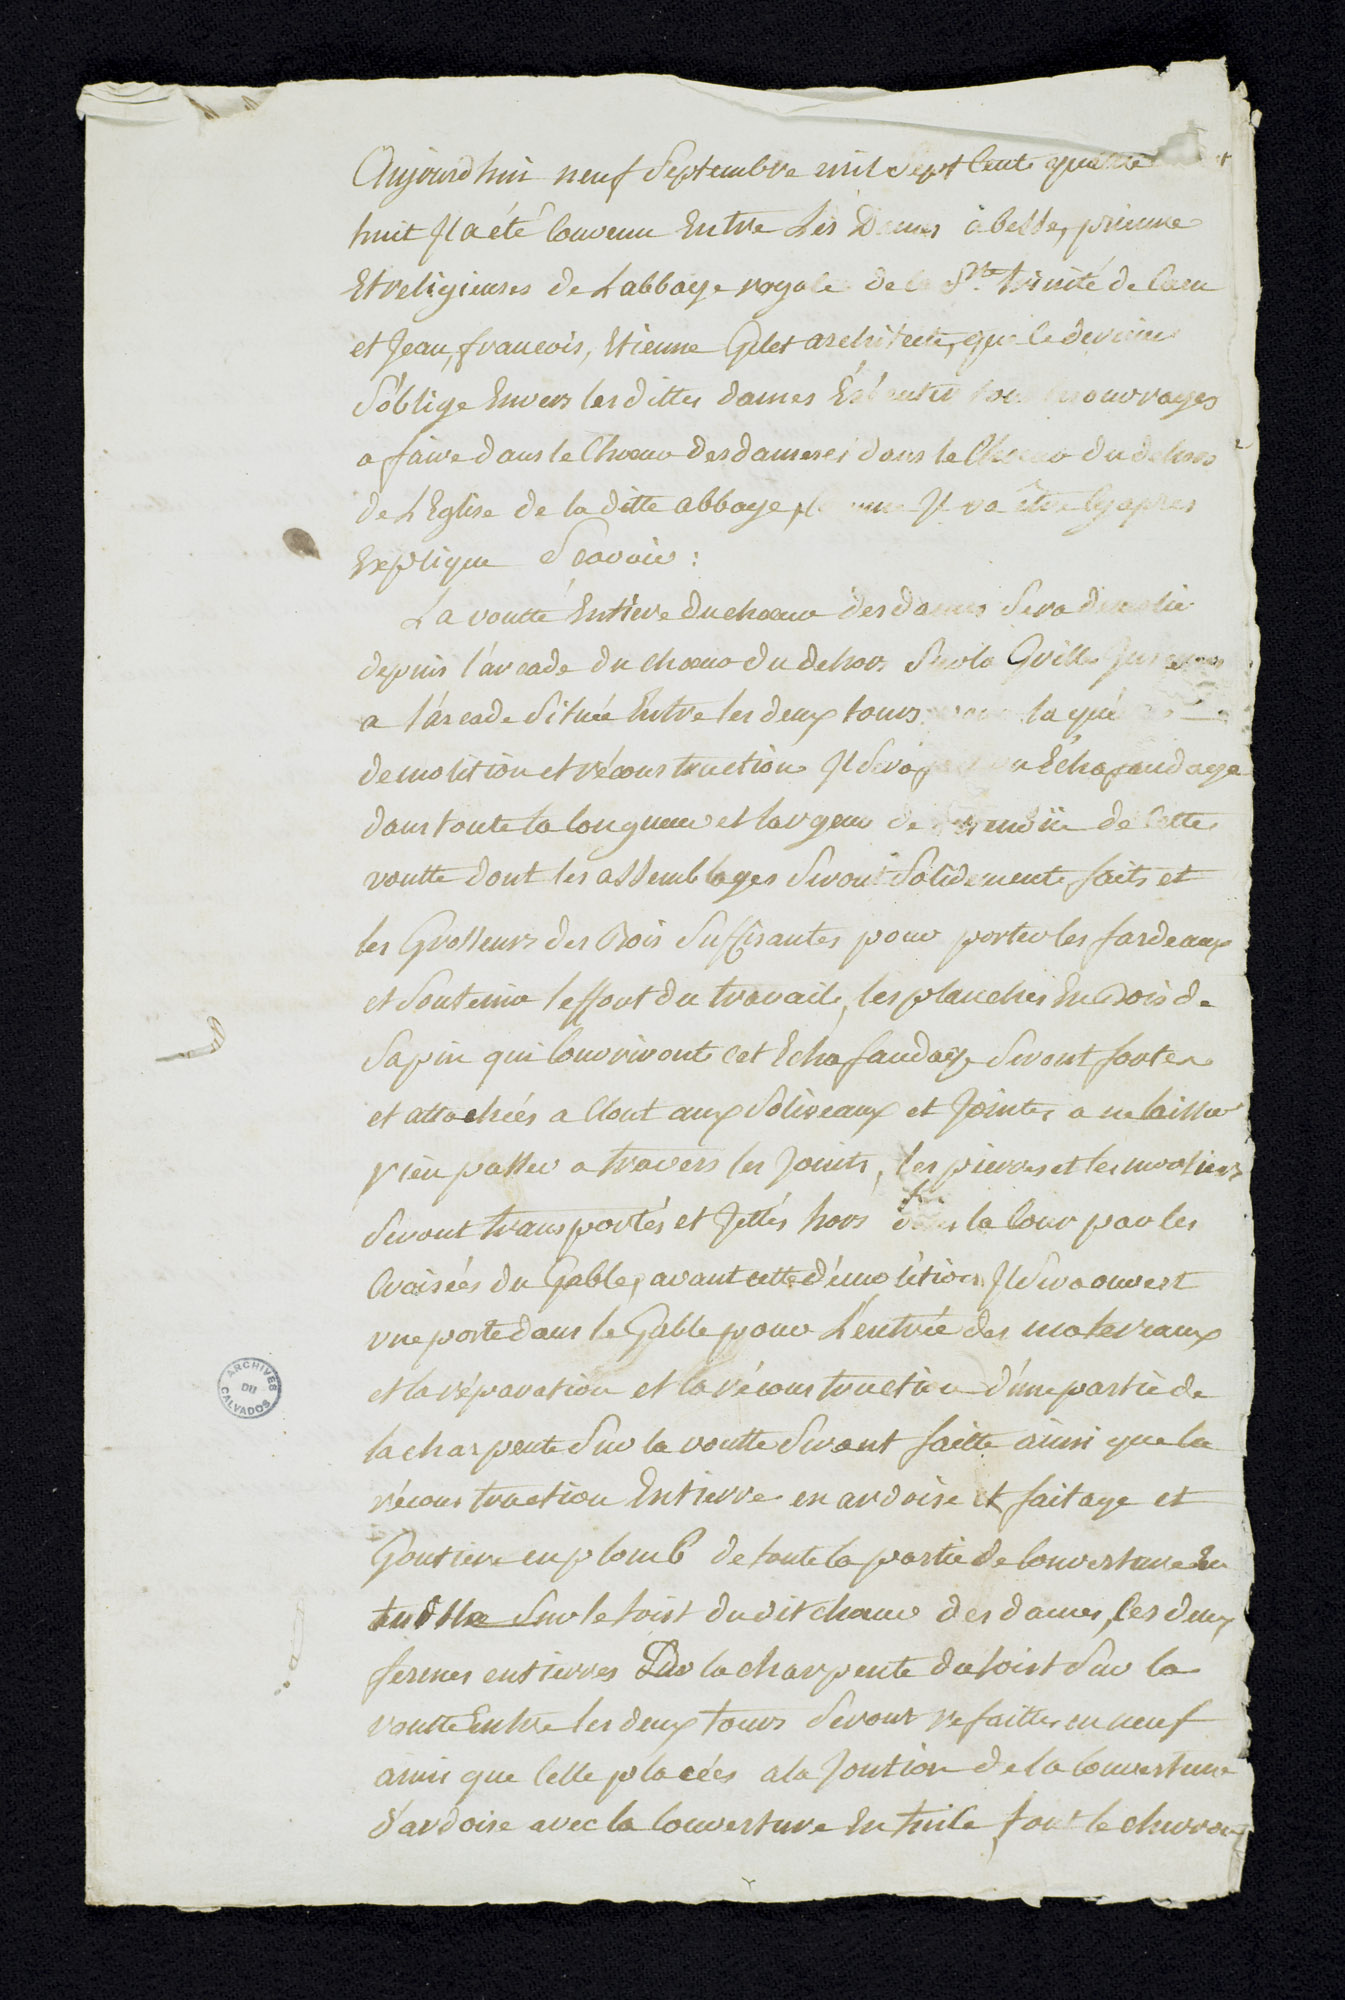 Aujourd'hui neuf Septembre mil Sept Cent quatre
huit Il a été Convenu Entre Les Dames abesse, prieure
Et religieuses de L'abbaye royale de la Ste. trinité de Caen
et Jean, francois, Etienne Gilet architecte, que le dernier
S'oblige Envers les dittes dames Exécuter tous les ouvrages
a faire dans le Choeur des dames et dans le Choeur du dehors
de L'Eglise de la ditte abbaye, comme Il va être Cy après
Expliqué Scavoir :
La voutte Entière du choeur des dames Sera démolie
depuis l'arcade du choeur du dehors Sur la Grille Jusques
a l'arcade Située Entre les deux tours pour la qué
demolition et réconstruction Il Sera fait un Echafaudage
dans toute la longueur et largeur de l'étendüe de Cette
voutte dont les assemblages Seront Solidement faits et
les Grosseurs des Bois Suffisantes pour porter les fardeaux
et Soutenir l'effort du travail, les planches En Bois de
Sapin qui Couvriront Cet Echafaudage Seront fortes
et attachées a Clout aux Soliveaux et Jointes a ne laisser
rien passer a travers les Joints, les pierres et les mortiers
Seront transportés et Jettés hors dans la Cour par les
Croisées du Gable, avant cette démolition Il Sera ouvert
une porte dans le Gable pour L'entrée des materiaux
et la réparation et la réconstruction d'une partie de
la charpente Sur la voutte Seront faitte ainsi que la
réconstruction Entierre en ardoise et faitage et
Goutiere en plomb de toute la partie de Couverture En
tuille Sur le toist du dit choeur des dames, les deux
fermes entierres Sur la charpente du toist Sur la
voutte Entre les deux tours Seront refaittes en neuf
ainsi que Celle placées a la Jontion de la Couverture
d'ardoise avec la Couverture En tuile, tout le chevron
ARCHIVES DU CALVADOS